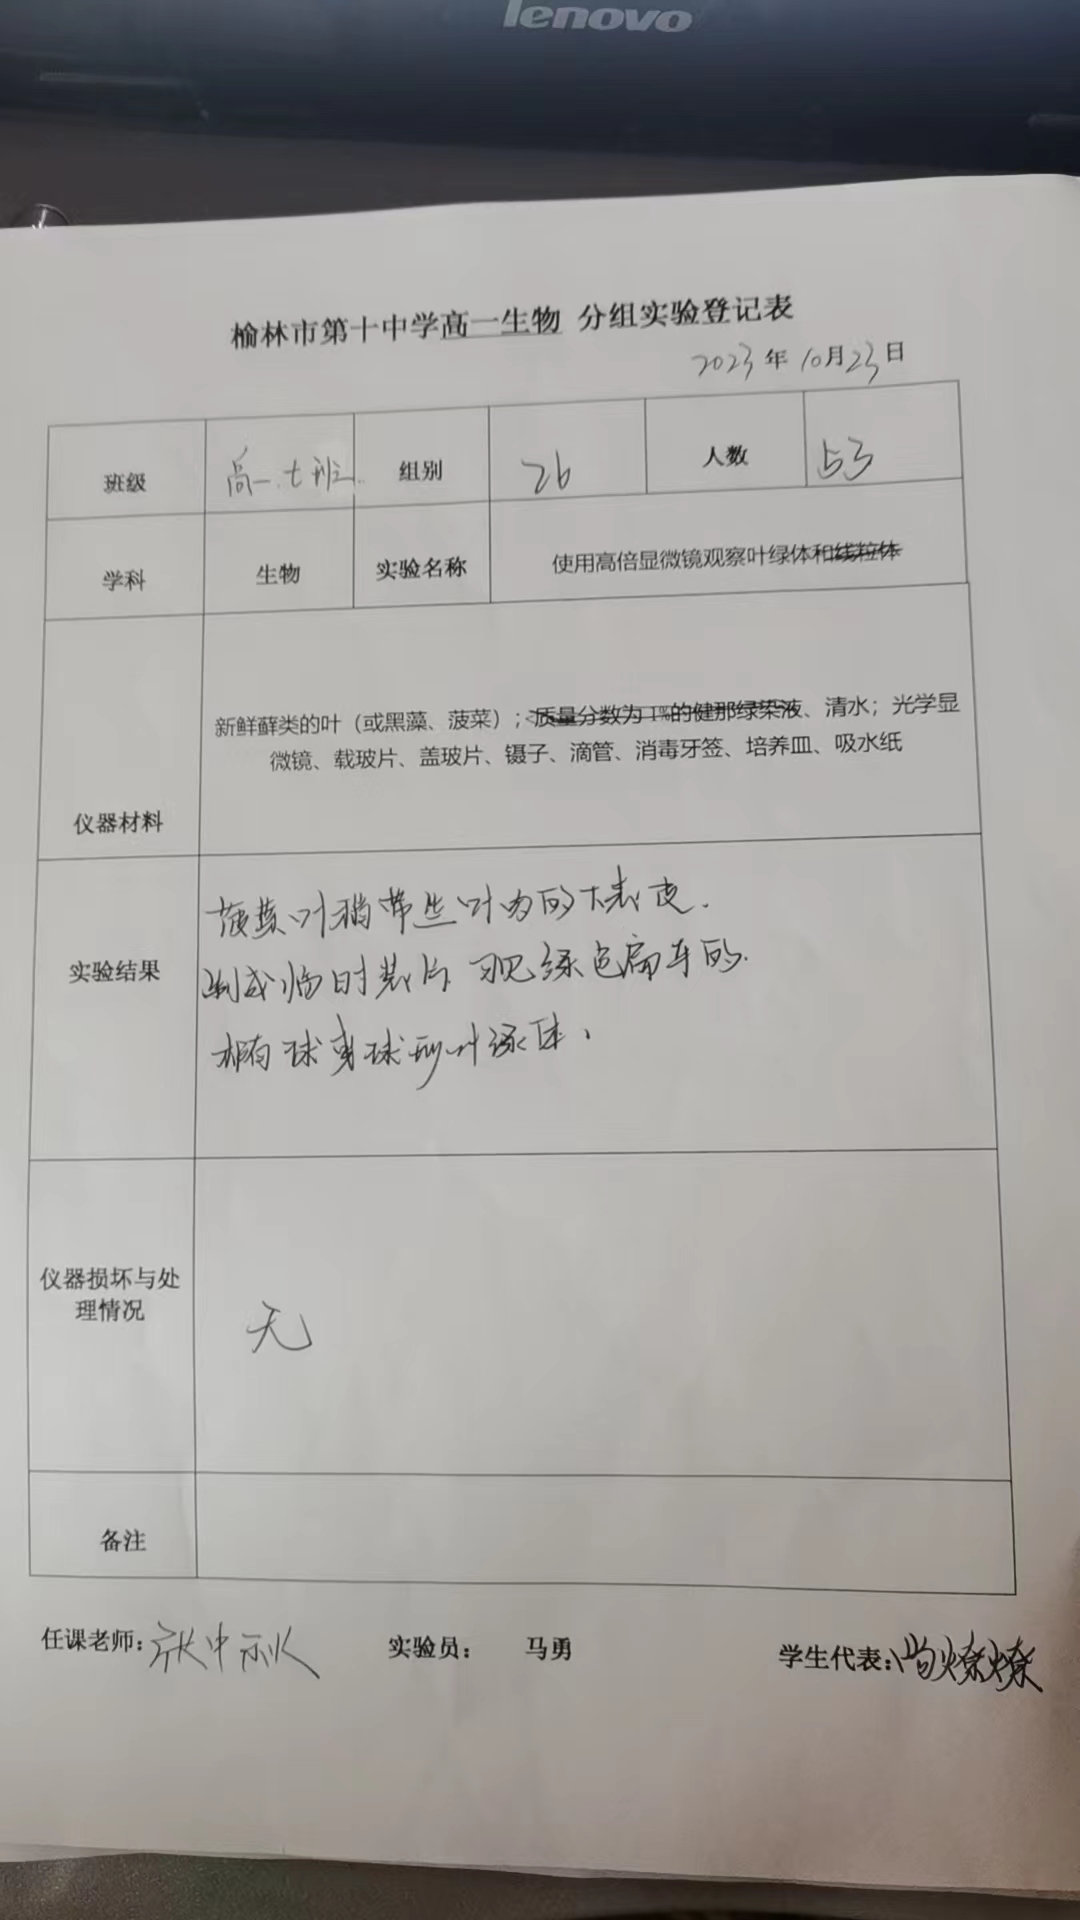 lenovo
榆林市第十中学高一生物 分组实验登记表
2023年10月23日
班级 高一.七班. 组别 26 人数 53
学科 生物 实验名称 使用高倍显微镜观察叶绿体和线粒体
仪器材料
新鲜藓类的叶（或黑藻、菠菜）；质量分数为1%的健那绿染液、清水；光学显
微镜、载玻片、盖玻片、镊子、滴管、消毒牙签、培养皿、吸水纸
实验结果
菠菜叶稍带些叶肉的下表皮.
制成临时装片 可见绿色扁平的.
椭球或球形叶绿体.
仪器损坏与处
理情况
无
备注
任课老师: 实验员: 马勇 学生代表: 尚燎燎